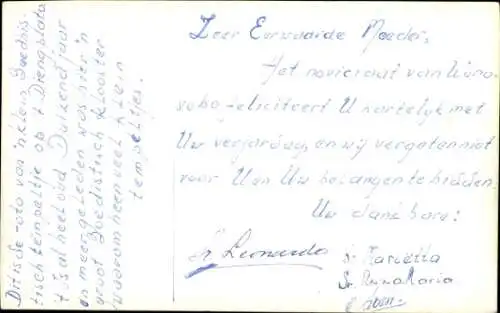 Dit is de foto van 'n klein Boedhis-
tisch tempeltje op 't Diengplato
't Is al heel oud Duizend jaar
en meer geleden was hier 'n
groot Boedistisch klooster
waarom heen veel klein
tempeltjes.
Zeer Eerwaarde Moeder,
Het noviciaat van Wono-
sobo feliciteert U hartelijk met
Uw verjaardag en wij vergeten niet
voor U en Uw belangen te bidden.
Uw dankbare:
Sr Leonarda
Sr. Mariëtta
Sr Anna Maria